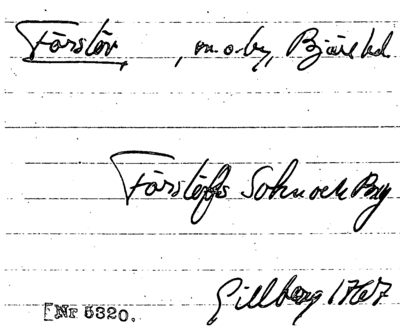 Förslöv, sn. o. by, Bjäre hd
Förslöfs Sokn och By
Gillberg 1767
[Nr 5320.